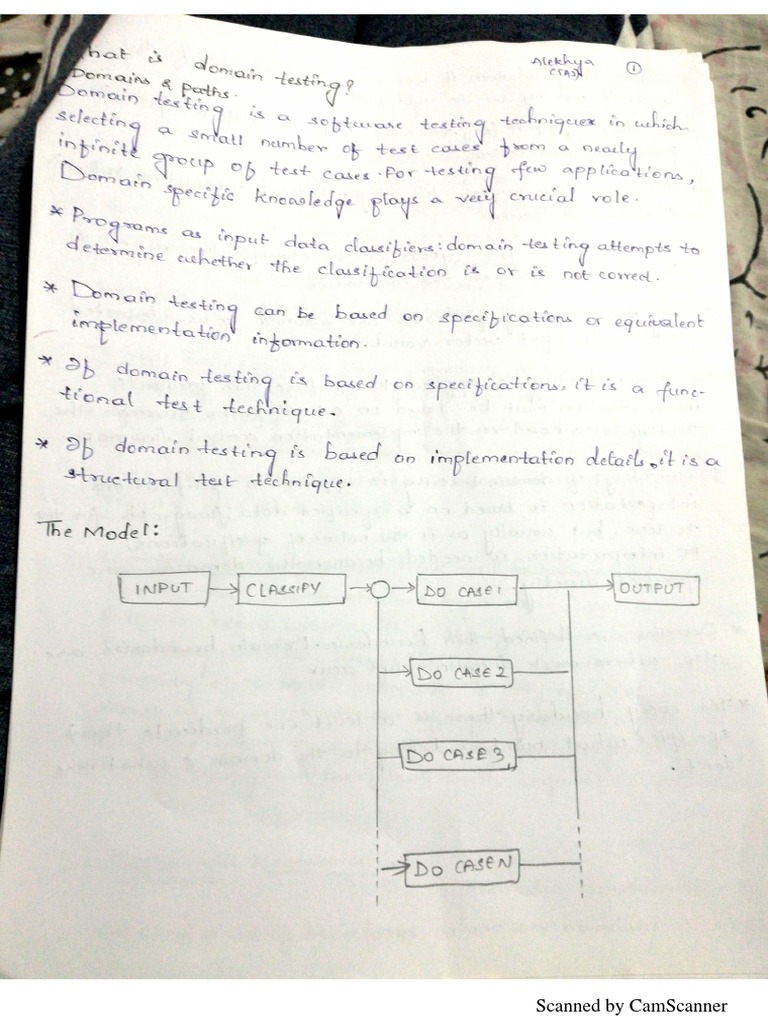 What is domain testing?
Alekhya
①
Domains & paths.
Domain testing is a software testing techniques in which
selecting a small number of test cases from a nearly
infinite group of test cases. For testing few applications,
Domain specific knowledge plays a very crucial role.
* Programs as input data classifiers: domain testing attempts to
determine whether the classification is or is not correct.
* Domain testing can be based on specifications or equivalent
implementation information.
* If domain testing is based on specifications, it is a func-
tional test technique.
* If domain testing is based on implementation details, it is a
structural test technique.
The Model:
INPUT
CLASSIFY
DO CASE1
OUTPUT
DO CASE2
DO CASE3
DO CASEN
Scanned by CamScanner